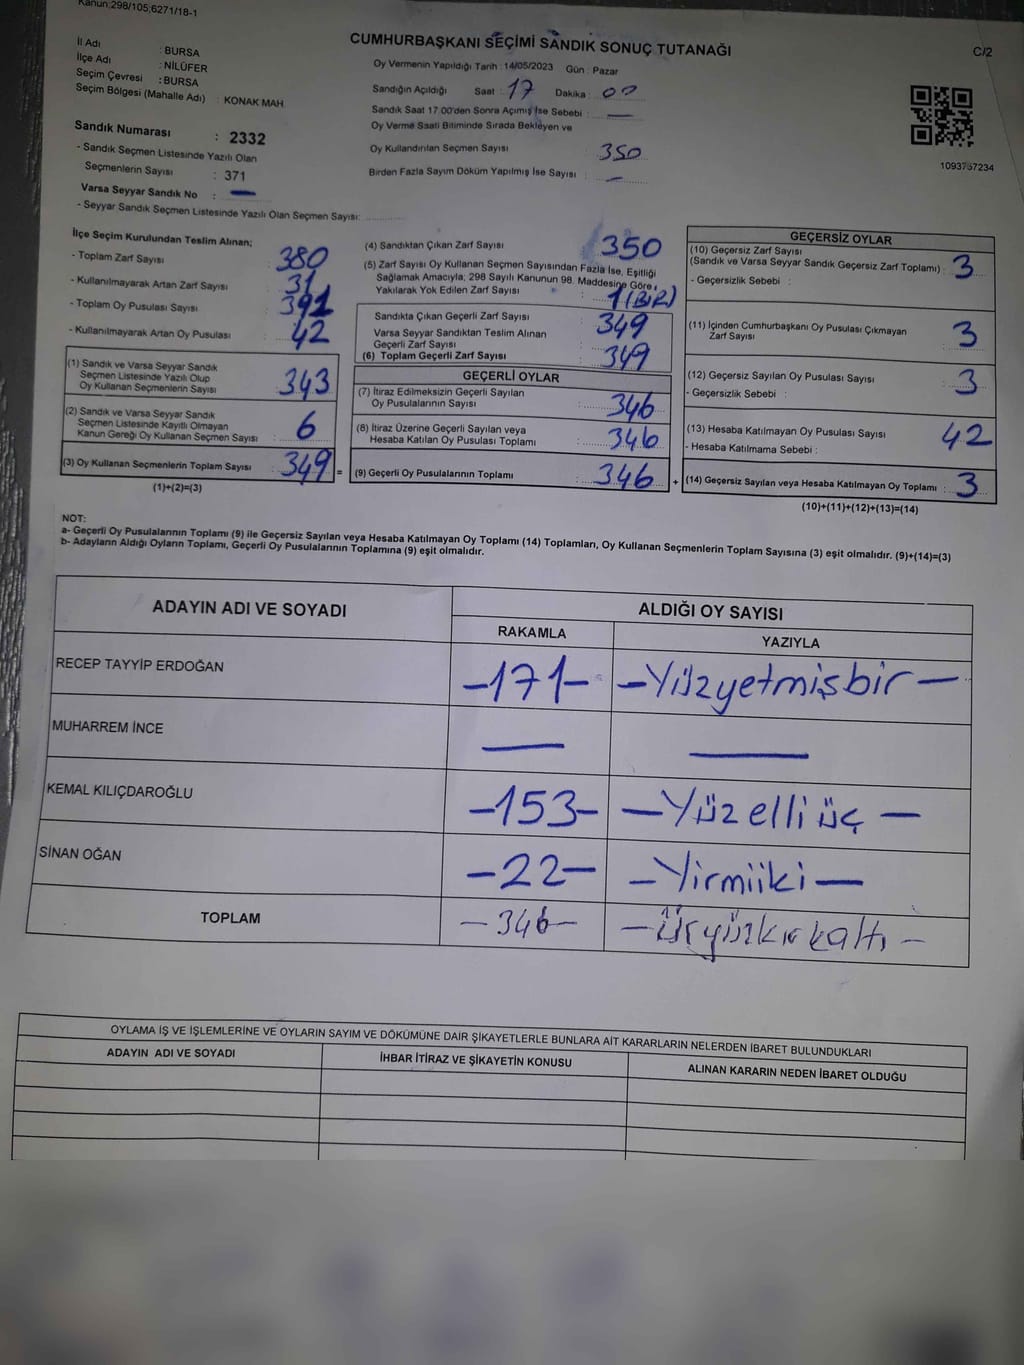 Kanun:298/105;6271/18-1
CUMHURBAŞKANI SEÇİMİ SANDIK SONUÇ TUTANAĞI
C/2
İl Adı : BURSA
İlçe Adı : NİLÜFER
Seçim Çevresi : BURSA
Seçim Bölgesi (Mahalle Adı) : KONAK MAH
Sandık Numarası : 2332
- Sandık Seçmen Listesinde Yazılı Olan
Seçmenlerin Sayısı : 371
Varsa Seyyar Sandık No : —
- Seyyar Sandık Seçmen Listesinde Yazılı Olan Seçmen Sayısı:
Oy Vermenin Yapıldığı Tarih : 14/05/2023 Gün : Pazar
Sandığın Açıldığı Saat : 17 Dakika : 00
Sandık Saat 17.00'den Sonra Açımış İse Sebebi : —
Oy Verme Saati Bitiminde Sırada Bekleyen ve
Oy Kullandırılan Seçmen Sayısı 350
Birden Fazla Sayım Döküm Yapılmış İse Sayısı : —
1093757234
İlçe Seçim Kurulundan Teslim Alınan;
- Toplam Zarf Sayısı : 380
- Kullanılmayarak Artan Zarf Sayısı : 31
- Toplam Oy Pusulası Sayısı : 391
- Kullanılmayarak Artan Oy Pusulası : 42
(1) Sandık ve Varsa Seyyar Sandık
Seçmen Listesinde Yazılı Olup
Oy Kullanan Seçmenlerin Sayısı : 343
(2) Sandık ve Varsa Seyyar Sandık
Seçmen Listesinde Kayıtlı Olmayan
Kanun Gereği Oy Kullanan Seçmen Sayısı : 6
(3) Oy Kullanan Seçmenlerin Toplam Sayısı : 349 =
(1)+(2)=(3)
(4) Sandıktan Çıkan Zarf Sayısı : 350
(5) Zarf Sayısı Oy Kullanan Seçmen Sayısından Fazla İse, Eşitliği
Sağlamak Amacıyla; 298 Sayılı Kanunun 98. Maddesine Göre,
Yakılarak Yok Edilen Zarf Sayısı : 1 (BİR)
Sandıkta Çıkan Geçerli Zarf Sayısı : 349
Varsa Seyyar Sandıktan Teslim Alınan
Geçerli Zarf Sayısı :
(6) Toplam Geçerli Zarf Sayısı : 349
GEÇERLİ OYLAR
(7) İtiraz Edilmeksizin Geçerli Sayılan
Oy Pusulalarının Sayısı : 346
(8) İtiraz Üzerine Geçerli Sayılan veya
Hesaba Katılan Oy Pusulası Toplamı : 346
(9) Geçerli Oy Pusulalarının Toplamı : 346 +
GEÇERSİZ OYLAR
(10) Geçersiz Zarf Sayısı
(Sandık ve Varsa Seyyar Sandık Geçersiz Zarf Toplamı) : 3
- Geçersizlik Sebebi :
(11) İçinden Cumhurbaşkanı Oy Pusulası Çıkmayan
Zarf Sayısı : 3
(12) Geçersiz Sayılan Oy Pusulası Sayısı : 3
- Geçersizlik Sebebi :
(13) Hesaba Katılmayan Oy Pusulası Sayısı : 42
- Hesaba Katılmama Sebebi :
(14) Geçersiz Sayılan veya Hesaba Katılmayan Oy Toplamı : 3
(10)+(11)+(12)+(13)=(14)
NOT:
a- Geçerli Oy Pusulalarının Toplamı (9) ile Geçersiz Sayılan veya Hesaba Katılmayan Oy Toplamı (14) Toplamları, Oy Kullanan Seçmenlerin Toplam Sayısına (3) eşit olmalıdır. (9)+(14)=(3)
b- Adayların Aldığı Oyların Toplamı, Geçerli Oy Pusulalarının Toplamına (9) eşit olmalıdır.
ADAYIN ADI VE SOYADI
ALDIĞI OY SAYISI
RAKAMLA YAZIYLA
RECEP TAYYİP ERDOĞAN -171- -Yüzyetmişbir-
MUHARREM İNCE — —
KEMAL KILIÇDAROĞLU -153- -Yüzelliüç-
SİNAN OĞAN -22- -Yirmiiki-
TOPLAM -346- -Üçyüzkırkaltı-
OYLAMA İŞ VE İŞLEMLERİNE VE OYLARIN SAYIM VE DÖKÜMÜNE DAİR ŞİKAYETLERLE BUNLARA AİT KARARLARIN NELERDEN İBARET BULUNDUKLARI
ADAYIN ADI VE SOYADI İHBAR İTİRAZ VE ŞİKAYETİN KONUSU ALINAN KARARIN NEDEN İBARET OLDUĞU